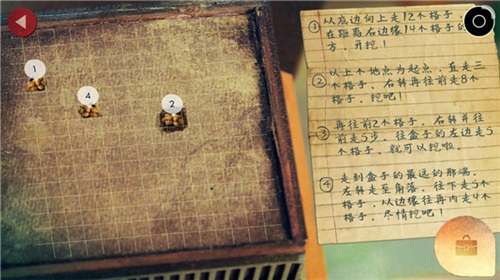 1
4
2
① 从底边向上走12个格子，
在距离右边缘14个格子的
方，开挖！
② 以上个地点为起点，直走三
个格子，右转再往前走8个
格子，挖吧！
③ 再往前2个格子，右转并往
前走5步，往盒子的左边走5
个格子，就可以挖啦。
④ 走到盒子的最远的那端，
左转走至角落，往下走5个
格子，从边缘往再内走4个
格子，尽情挖吧！